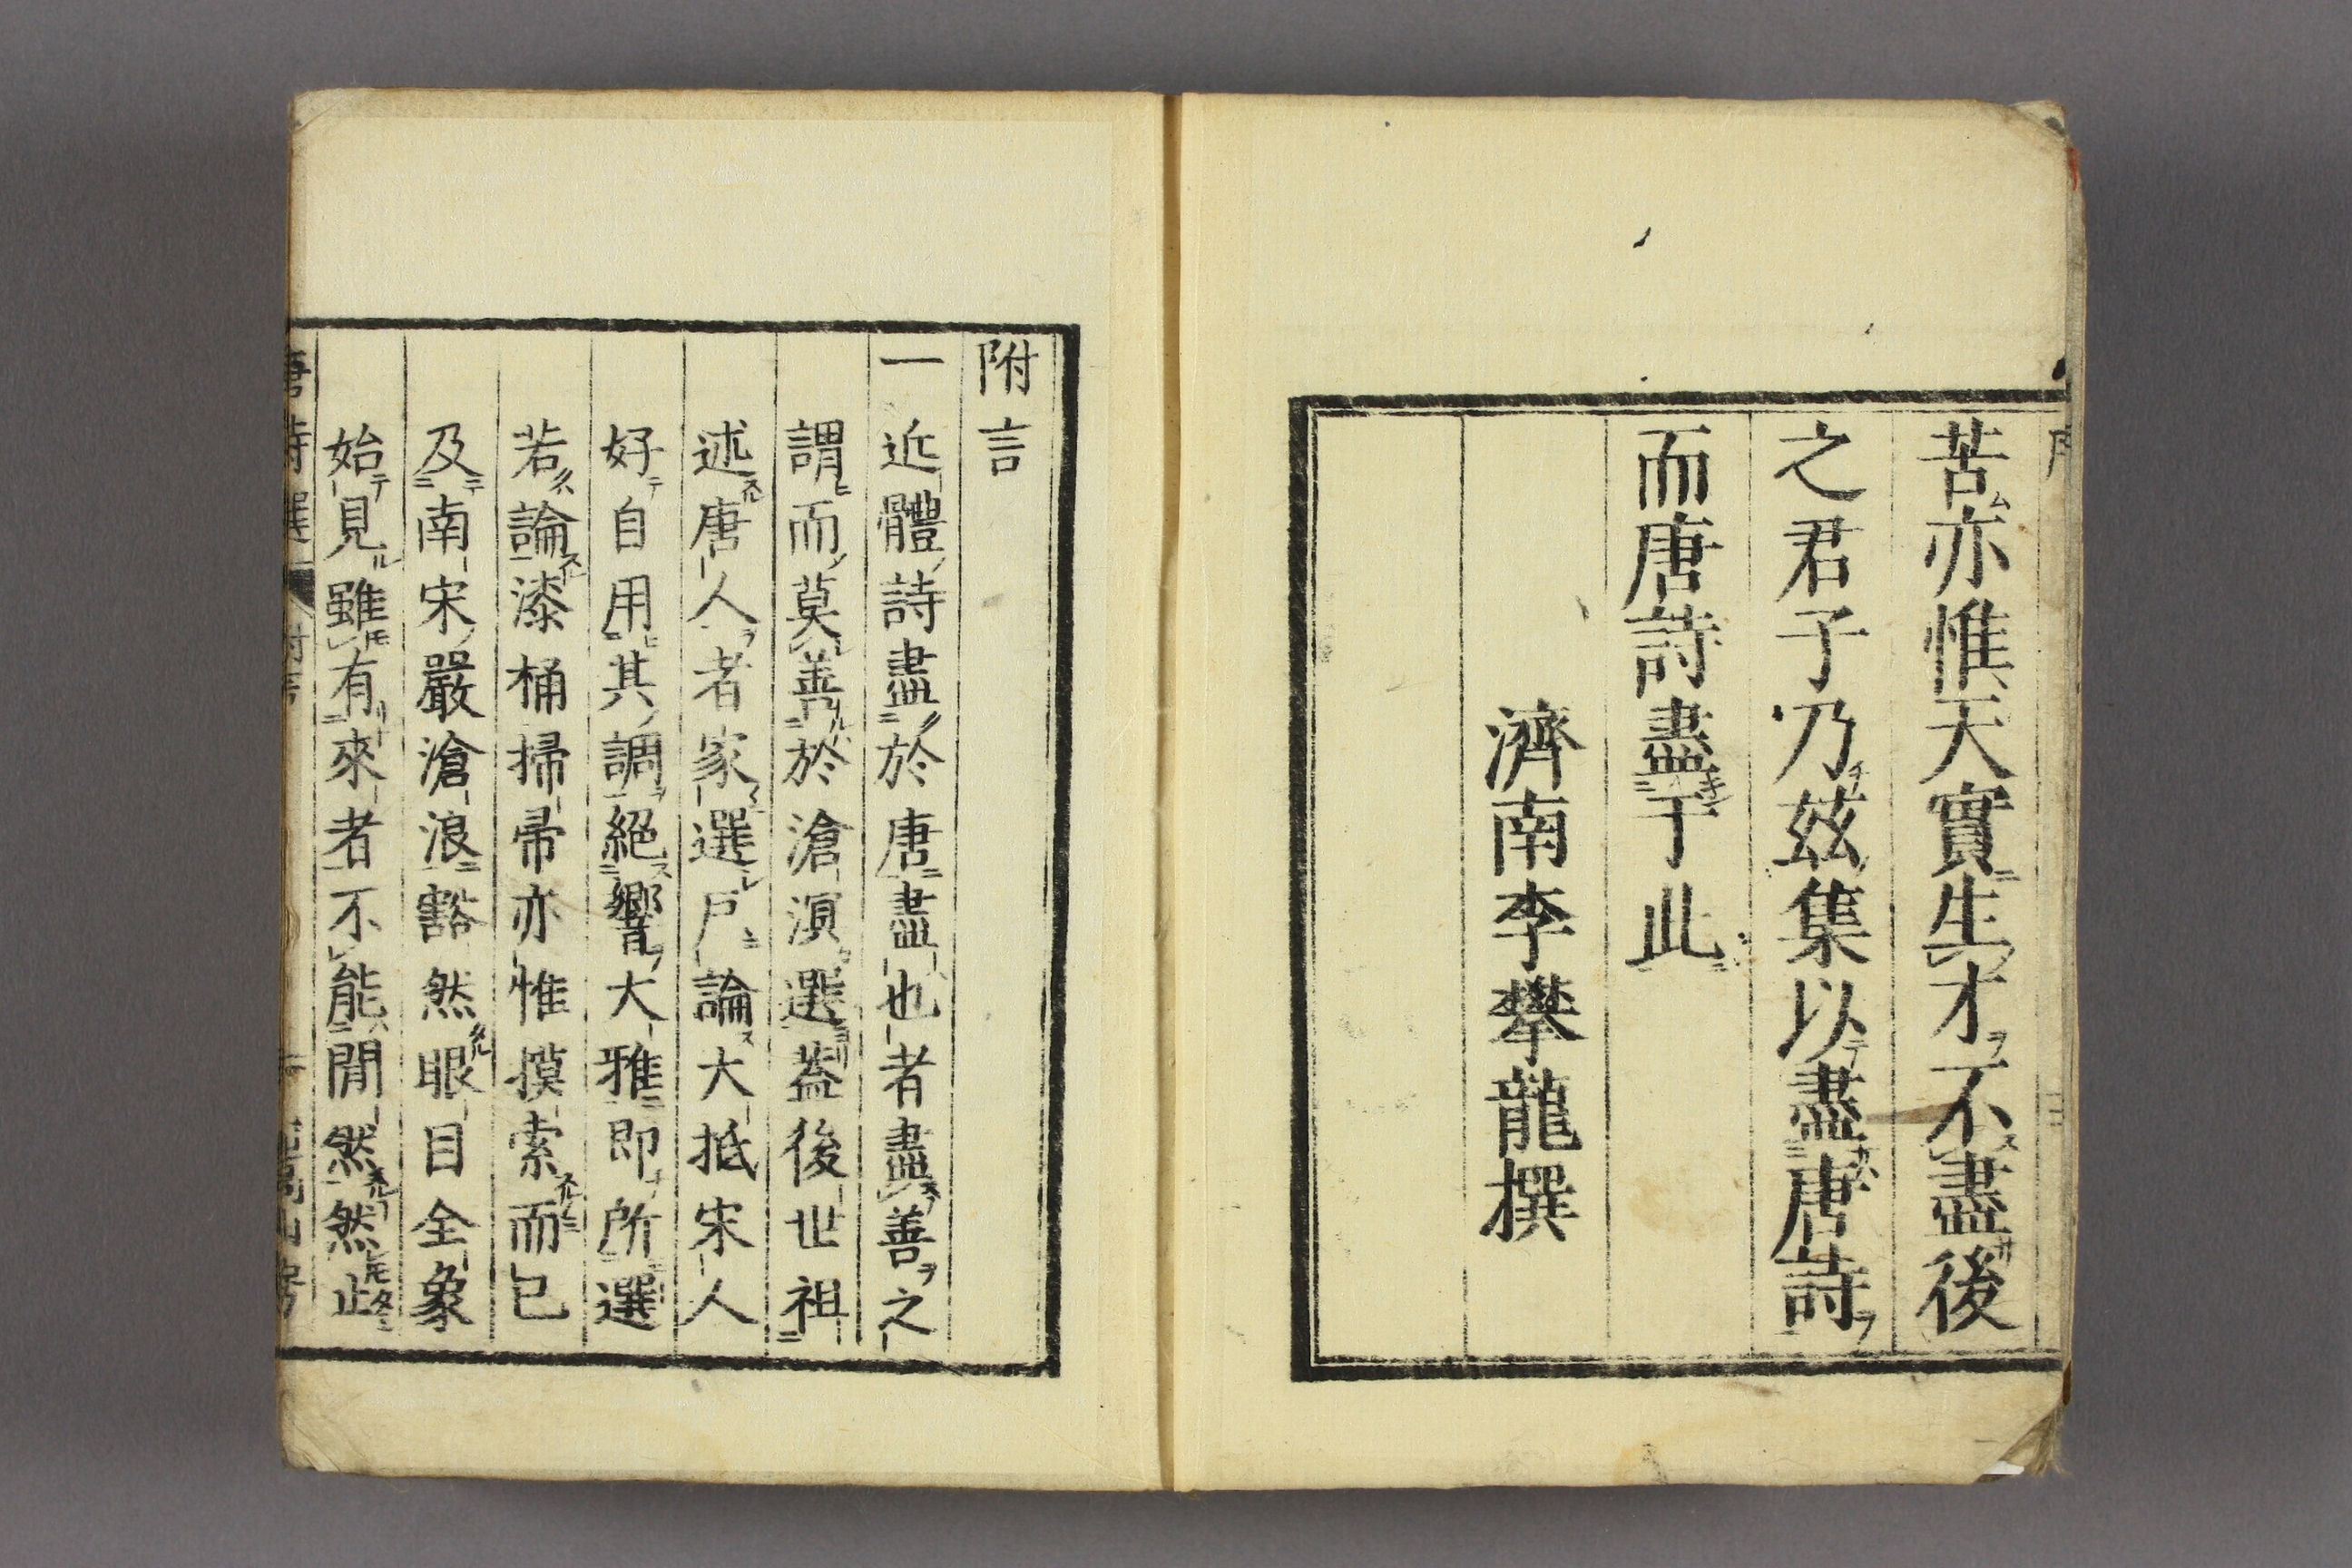 苦亦惟天實生才不盡後
之君子乃玆集以盡唐詩
而唐詩盡于此
濟南李攀龍撰
附言
一近體詩盡於唐盡也者盡善之
謂而莫善於滄溟選蓋後世祖
述唐人者家選戶論大抵宋人
好自用其調絕響大雅即所選
若論漆桶掃帚亦惟摸索而已
及南宋嚴滄浪豁然眼目全象
始見雖有來者不能閒然然止
唐詩選 附言